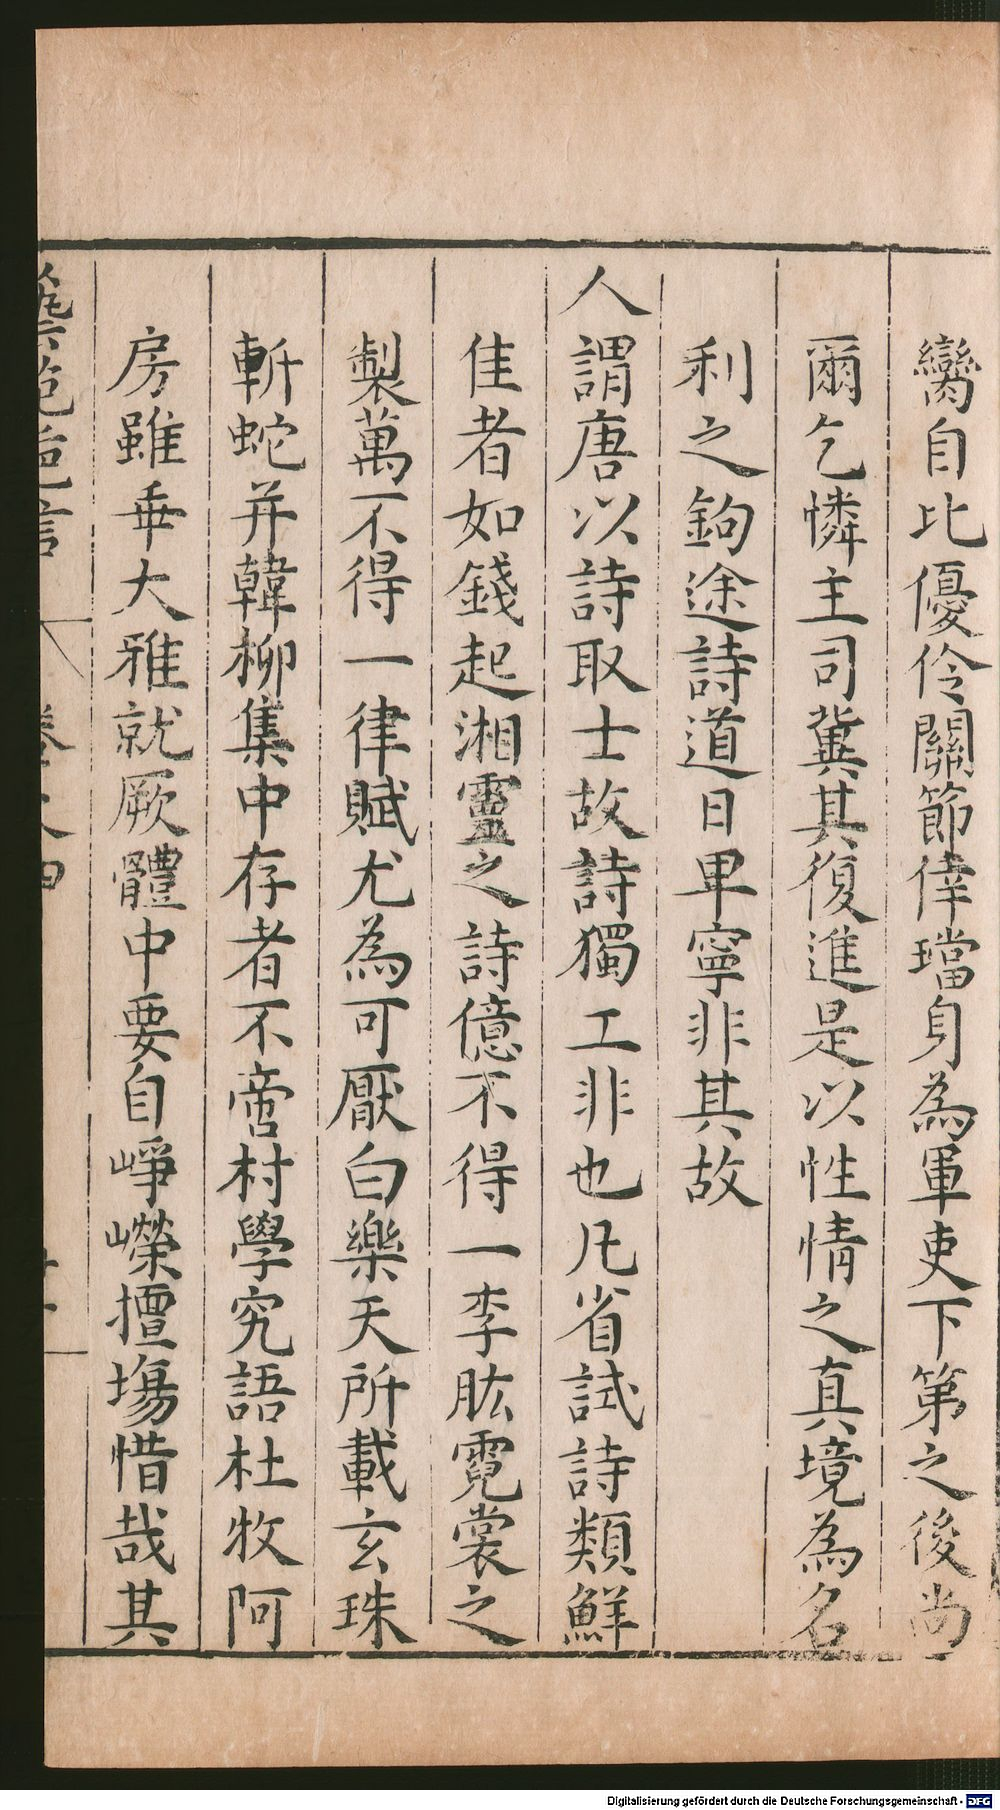 臠自比優伶關節偉璫身為軍吏下第之後尚
爾乞憐主司冀其復進是以性情之真境為名
利之鉤途詩道日卑寧非其故
人謂唐以詩取士故詩獨工非也凡省試詩類鮮
佳者如錢起湘靈之詩億不得一李肱霓裳之
製萬不得一律賦尤為可厭白樂天所載玄珠
斬蛇并韓柳集中存者不啻村學究語杜牧阿
房雖乖大雅就厥體中要自崢嶸擅塲惜哉其
藝苑巵言
卷之四
Digitalisierung gefördert durch die Deutsche Forschungsgemeinschaft - DFG